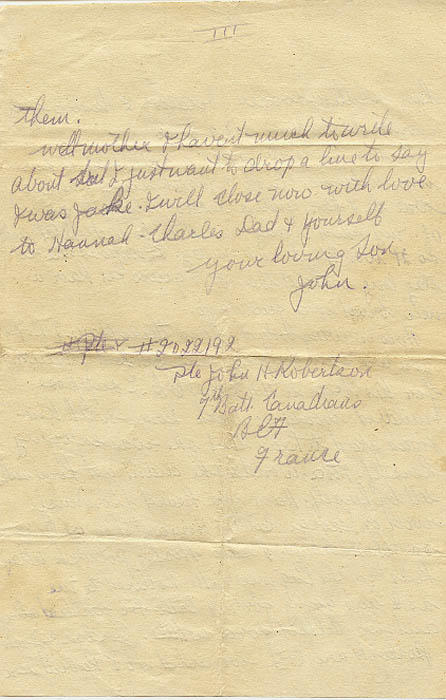 III
them.
Well mother I havent much to write
about but I just want to drop a line to say
I was jake. I will close now with love
to Hannah. Charles Dad & yourself
your loving Son
John.
# 2022192
Pte John H Robertson
7th Batt. Canadians
BEF
France